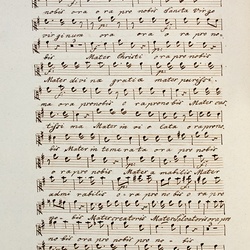 nobis ora ora pro nobis Sancta Virgo
virginum ora ora ora pro no-
bis Mater Christi ora pro nobis
Mater divinæ gratiæ mater puriss:
ma ora pro nobis ora pro nobis Mater cas-
tissima Mater inviolata ora pro no-
bis Mater intemerata ora pro nobis
ora pro nobis Mater amabilis Mater
admirabilis ora pro nobis ora pro
no-bis Mater creatoris Mater Salvatoris ora pro
nobis ora pro nobis pro no-bis